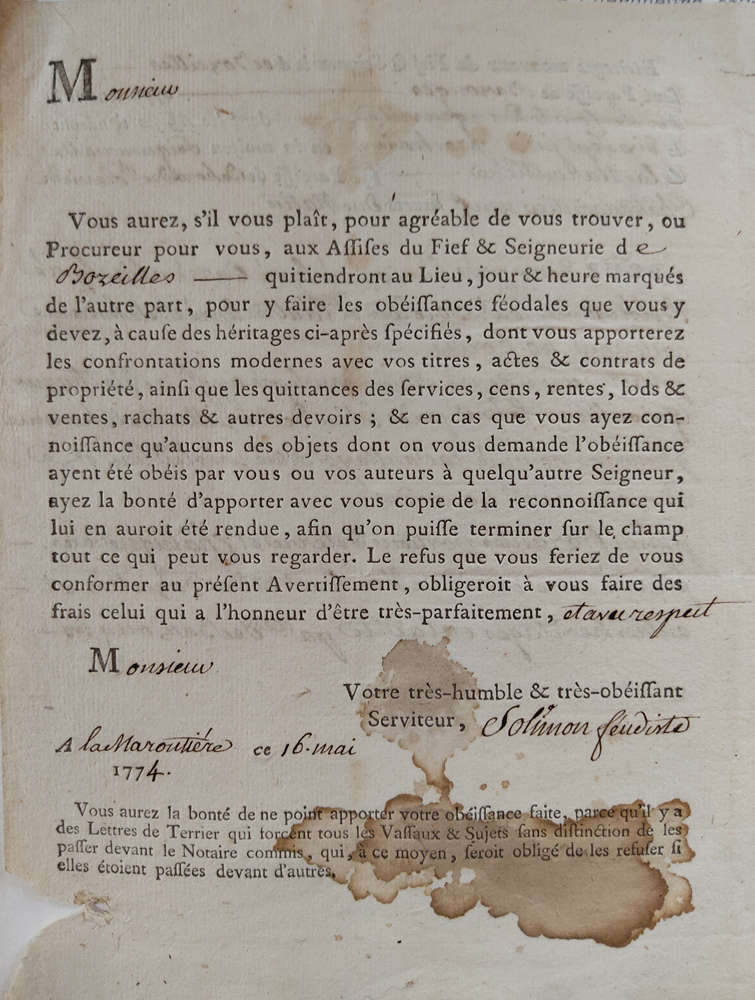 Monsieur
Vous aurez, s'il vous plaît, pour agréable de vous trouver, ou
Procureur pour vous, aux Aſſiſes du Fief & Seigneurie de
Bozeilles —— qui tiendront au Lieu, jour & heure marqués
de l'autre part, pour y faire les obéiſſances féodales que vous y
devez, à cauſe des héritages ci-après ſpécifiés, dont vous apporterez
les confrontations modernes avec vos titres, actes & contrats de
propriété, ainſi que les quittances des ſervices, cens, rentes, lods &
ventes, rachats & autres devoirs ; & en cas que vous ayez con-
noiſſance qu'aucuns des objets dont on vous demande l'obéiſſance
ayent été obéis par vous ou vos auteurs à quelqu'autre Seigneur,
ayez la bonté d'apporter avec vous copie de la reconnoiſſance qui
lui en auroit été rendue, afin qu'on puiſſe terminer ſur le champ
tout ce qui peut vous regarder. Le refus que vous feriez de vous
conformer au préſent Avertiſſement, obligeroit à vous faire des
frais celui qui a l'honneur d'être très-parfaitement, et avec respect
Monsieur
Votre très-humble & très-obéiſſant
Serviteur, Solimon féudiste
A la Maroutière ce 16. mai
1774.
Vous aurez la bonté de ne point apporter votre obéiſſance faite, parce qu'il y a
des Lettres de Terrier qui forcent tous les Vaſſaux & Sujets ſans diſtinction de les
paſſer devant le Notaire commis, qui, à ce moyen, ſeroit obligé de les refuſer ſi
elles étoient paſſées devant d'autres.